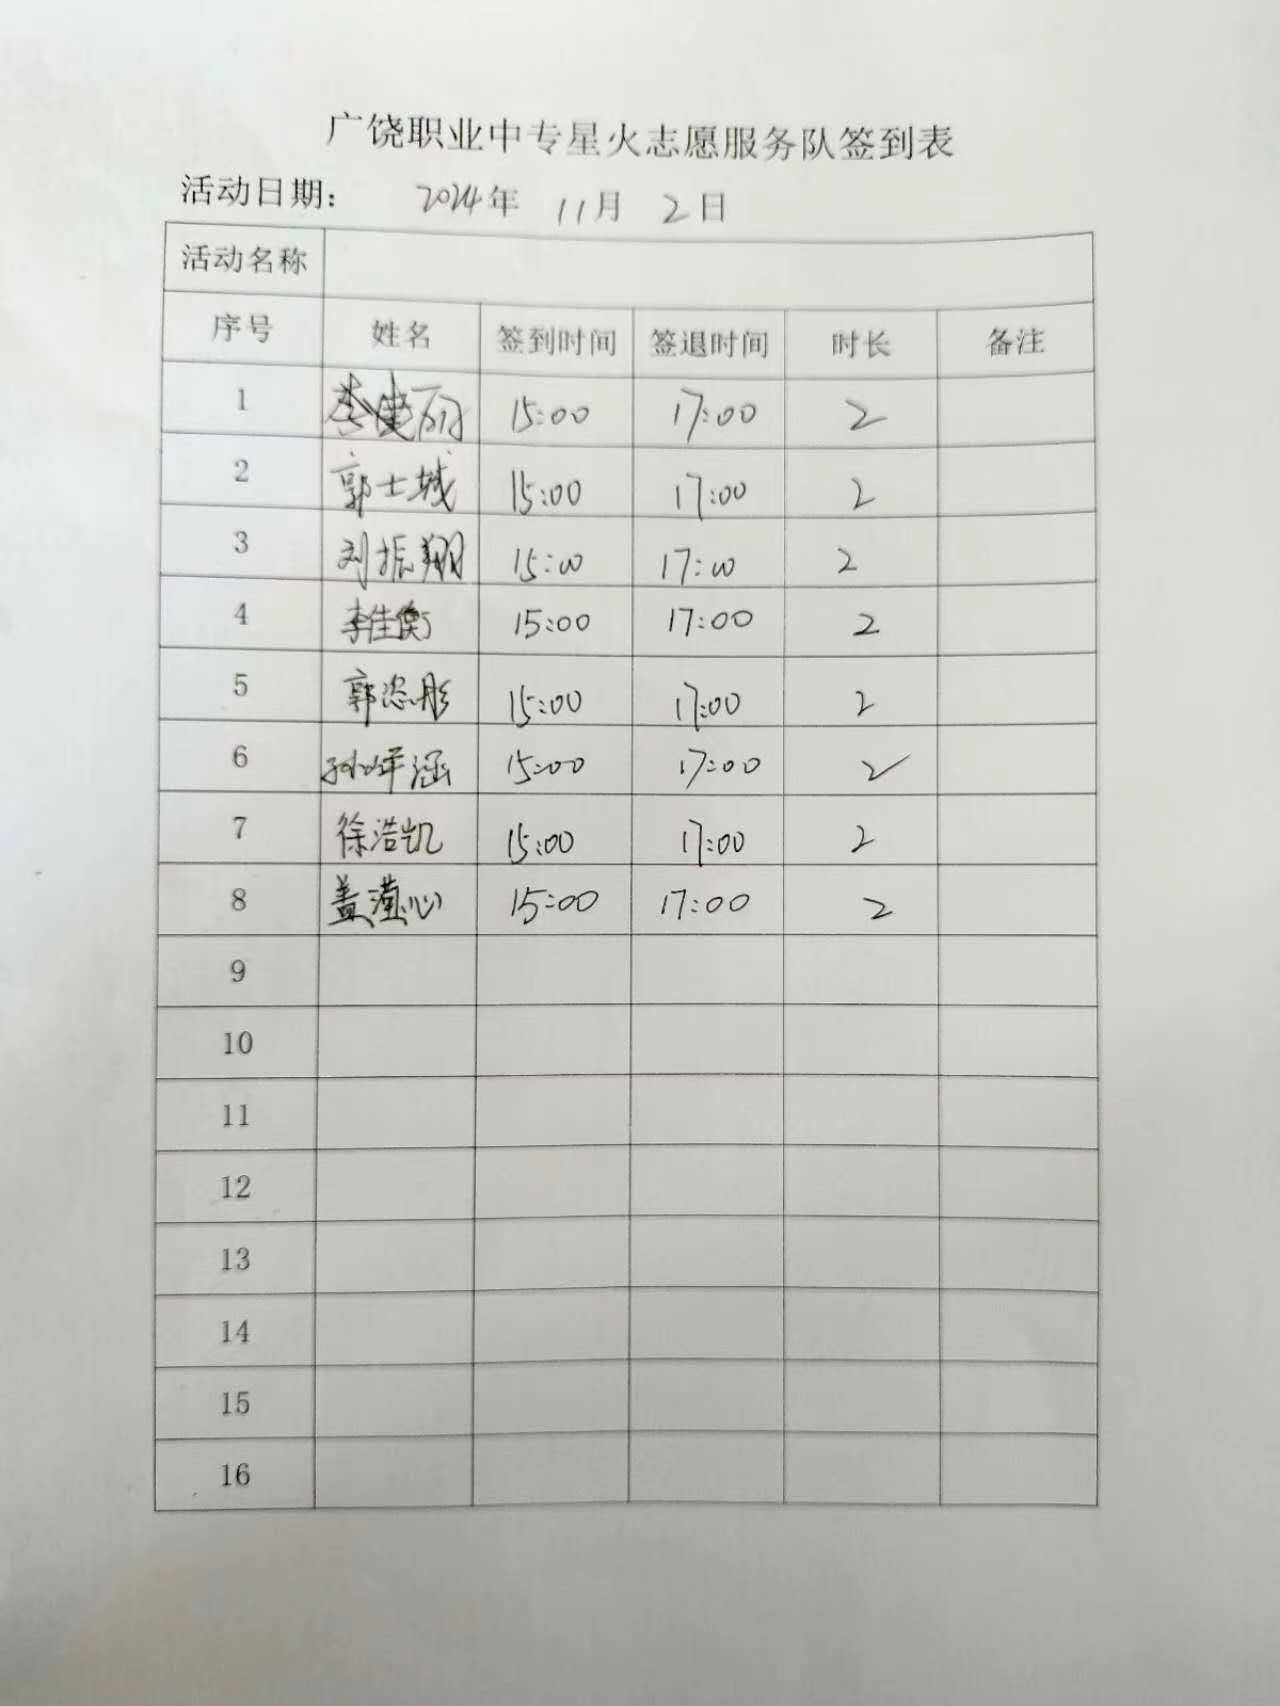 广饶职业中专星火志愿服务队签到表
活动日期： 2024年 11月 2日
活动名称
序号 姓名 签到时间 签退时间 时长 备注
1 李建丽 15:00 17:00 2
2 郭士城 15:00 17:00 2
3 刘振翔 15:00 17:00 2
4 李佳衡 15:00 17:00 2
5 郭恣彤 15:00 17:00 2
6 15:00 17:00 2
7 徐浩凯 15:00 17:00 2
8 15:00 17:00 2
9
10
11
12
13
14
15
16